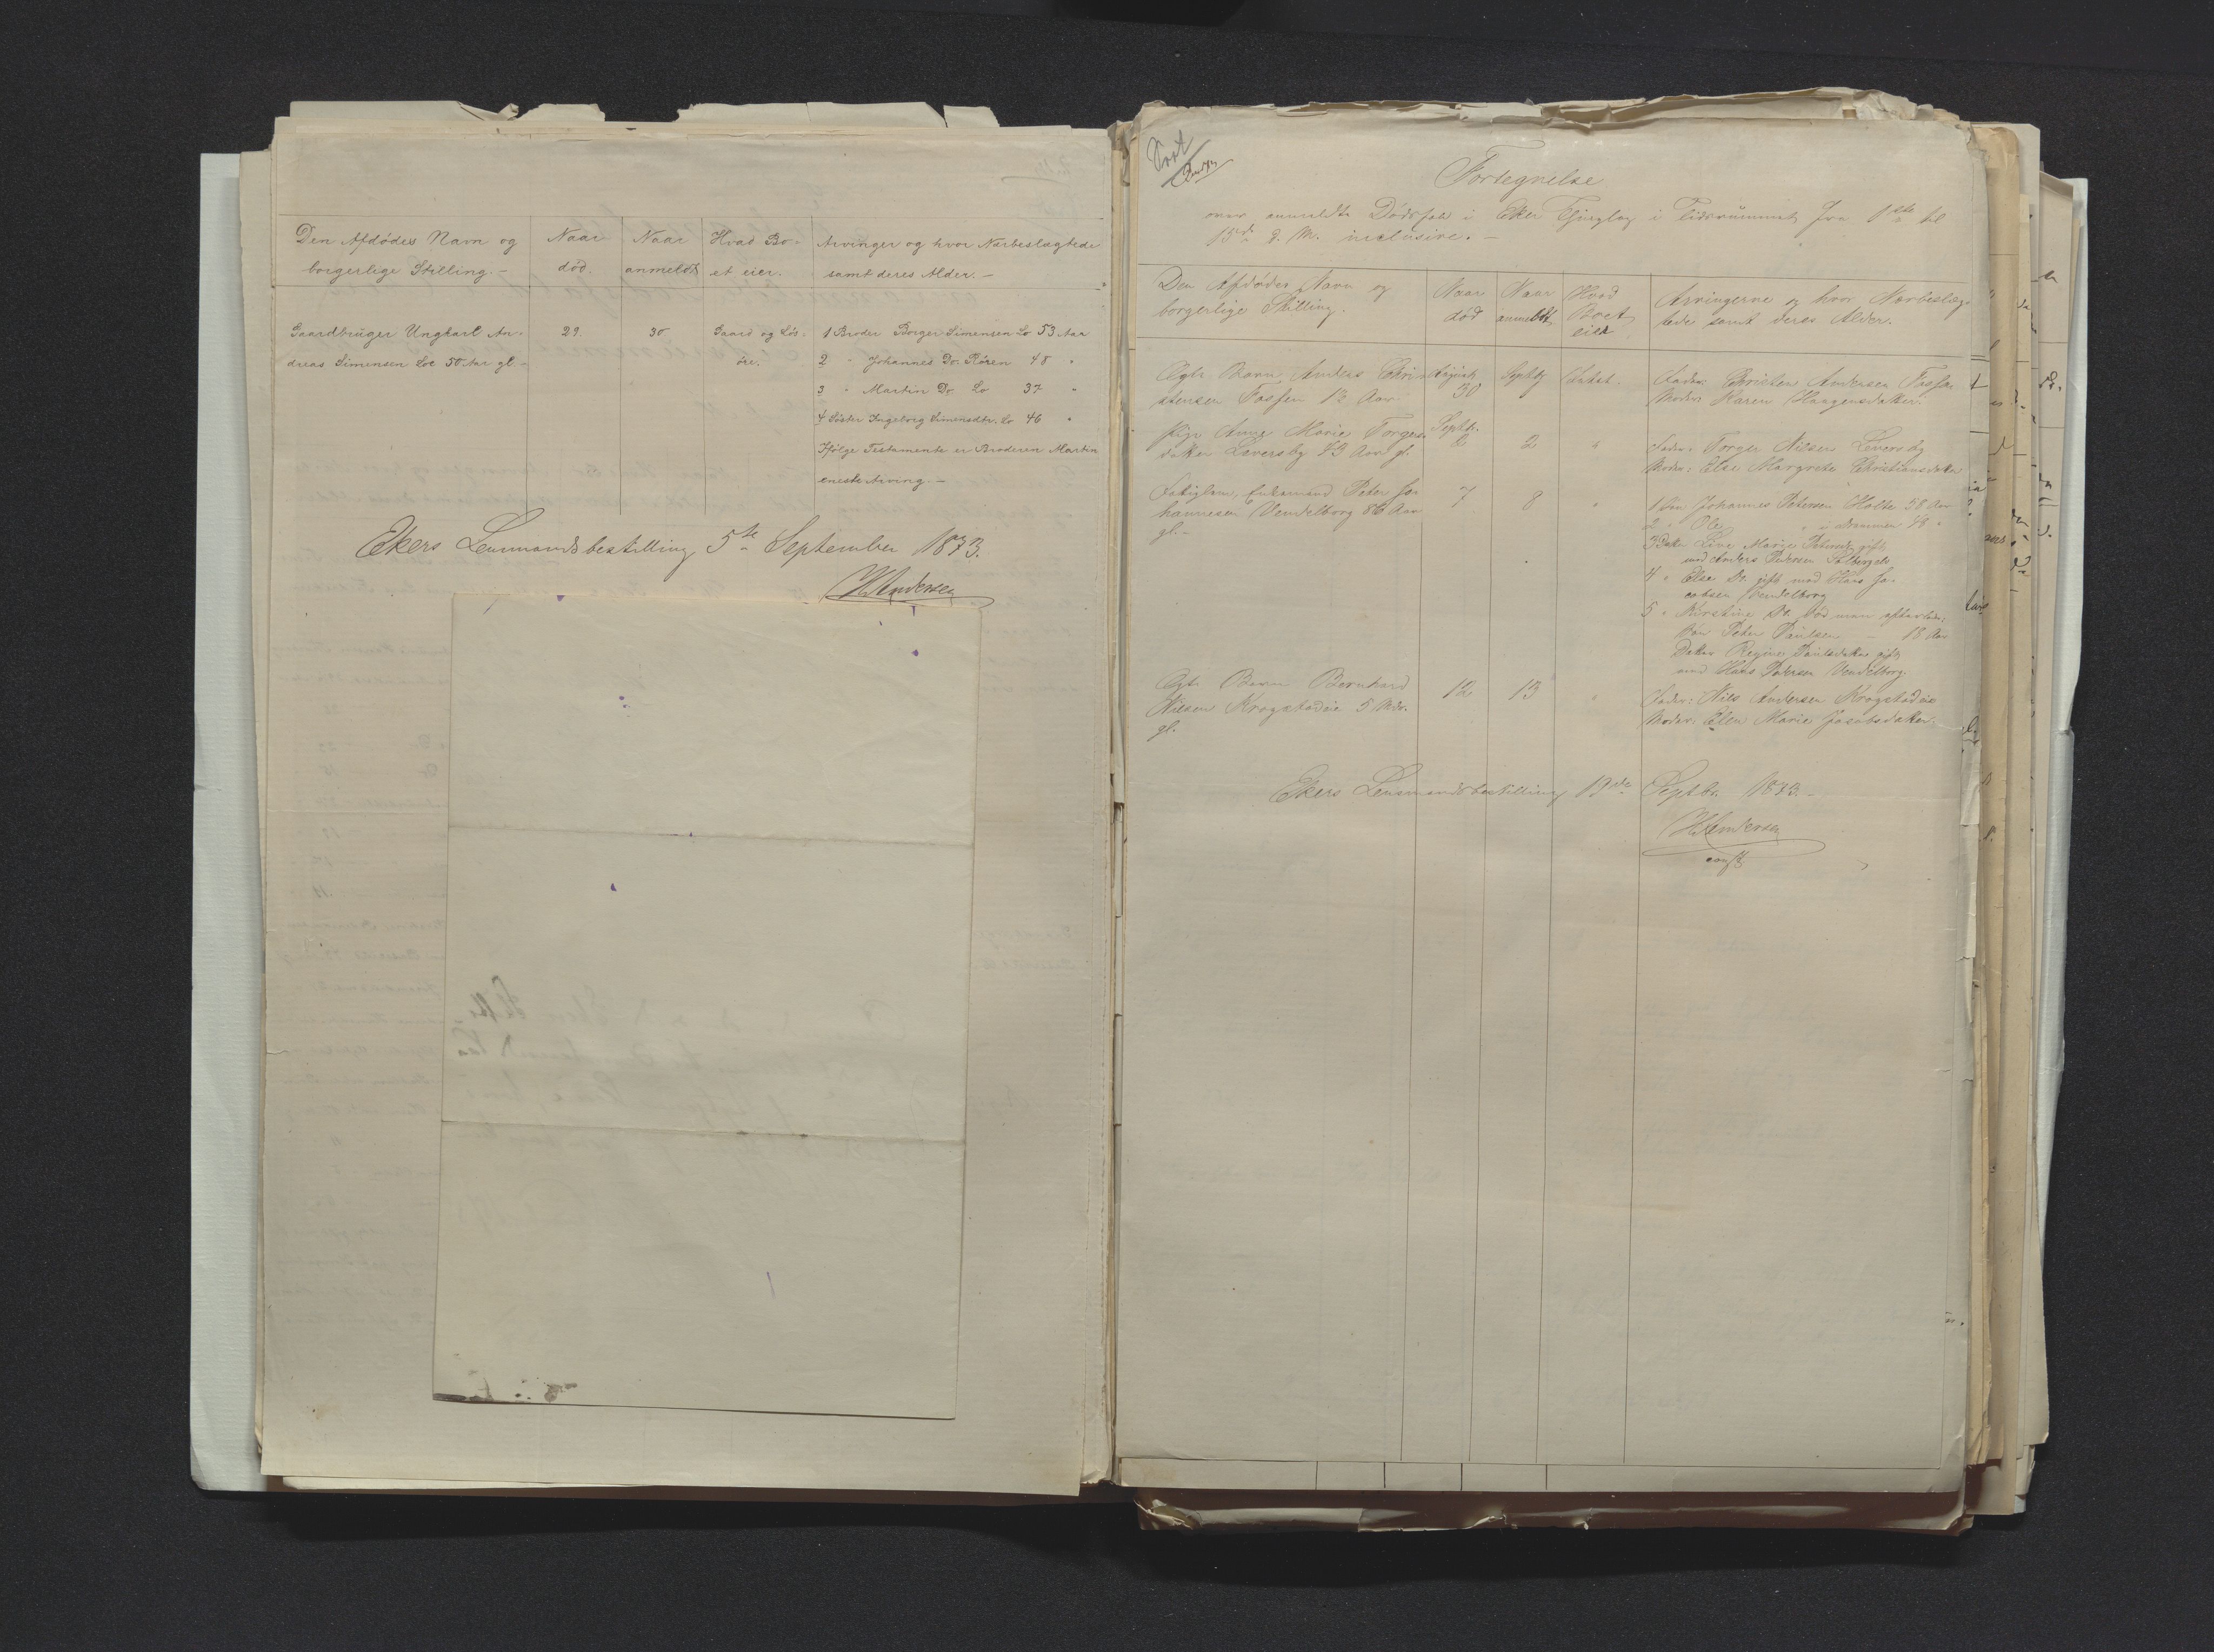 Den Afdødes Navn og
borgerlige Stilling.-
Naar
død.
Naar
anmeldt
Hvad Bo-
et eier.
Arvinger og hvor Nærbeslægtede
samt deres Alder.-
Gaardbruger Ungkarl An-
dreas Simensen Loe 50 Aar gl.-
29.
30
Gaard og Løs-
øre.
1 Broder Borger Simensen Lo 53 Aar
2 " Johannes Do. Røren 48 "
3 " Martin Do. Lo 37 "
4 Søster Ingeborg Simensdtr. Lo 46 "
Ifølge Testamente er Broderen Martin
eneste Arving.-
Ekers Lensmandsbestilling 5te September 1873.
H. Andersen
Fortegnelse
over anmeldte Dødsfald i Eker Thinglag i Tidsrummet fra 1ste til
15de d. M. inclusive.-
Den Afdødes Navn og
borgerlige Stilling.
Naar
død
Naar
anmeldt
Hvad
Boet
eier
Arvingerne og hvor Nærbeslæg-
tede samt deres Alder.
Ægte Barn Anders Chri-
stensen Fossen 12 Aar.
August
30
Septbr
Intet.
Fader: Christen Andersen Fossen
Moder: Karen Haagensdatter.
Pige Anne Marie Torgers-
datter Leversby 43 Aar gl.
Septbr.
2
2
"
Fader: Torger Nilsen Leversby
Moder: Else Margrethe Christiansdatter
Fattiglem, Enkemand Peter Jo-
hannesen Vendelborg 86 Aar
gl.-
7
8
"
1 Søn Johannes Petersen Holte 58 Aar
2 " Ole " i Drammen 48 "
3 Datter Line Marie Petersdtr gift
med Anders Pedersen Solberg
4 " Else Do. gift med Hans Ja-
cobsen Vendelborg
5 " Kirstine Do. død men efterlader:
Søn Peter Paulsen - 18 Aar
Datter Regine Paulsdatter gift
med Hans Pedersen Vendelborg.
Ægte Barn Bernhard
Nilsen Krogstadeie 5 Mdr.
gl.
12
13
"
Fader: Nils Andersen Krogstadeie
Moder: Elen Marie Jacobsdatter.
Ekers Lensmandsbestilling 19de Septbr. 1873.-
H. Andersen
const